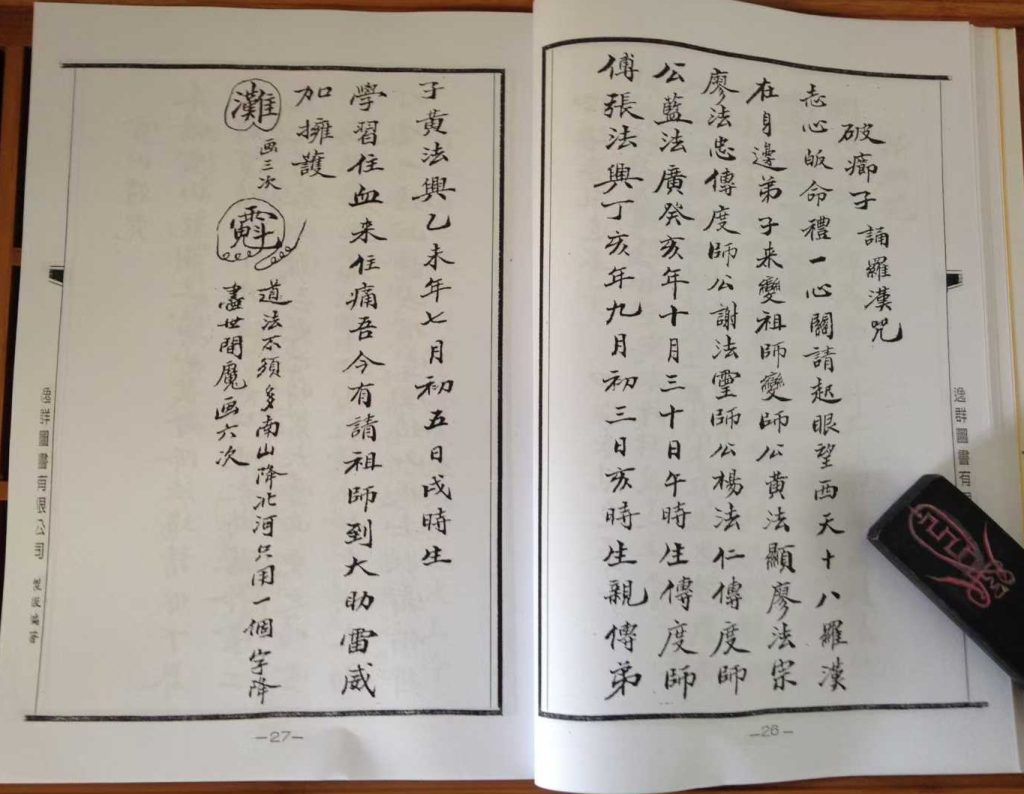 破癤子 誦羅漢咒
志心皈命禮一心關請起眼望西天十八羅漢
在身邊弟子來變祖師變師公黃法顯廖法宗
廖法忠傳度師公謝法靈師公楊法仁傳度師
公藍法廣癸亥年十月三十日午時生傳度師
傅張法興丁亥年九月初三日亥時生親傳弟
-26-
逸群圖書有限
子黃法興乙未年七月初五日戌時生
學習住血来住痛吾今有請祖師到大助雷威
加擁護
灘 画三次
道法不須多南山降北河只用一個字降
盡世間魔画六次
-27-
逸群圖書有限公司